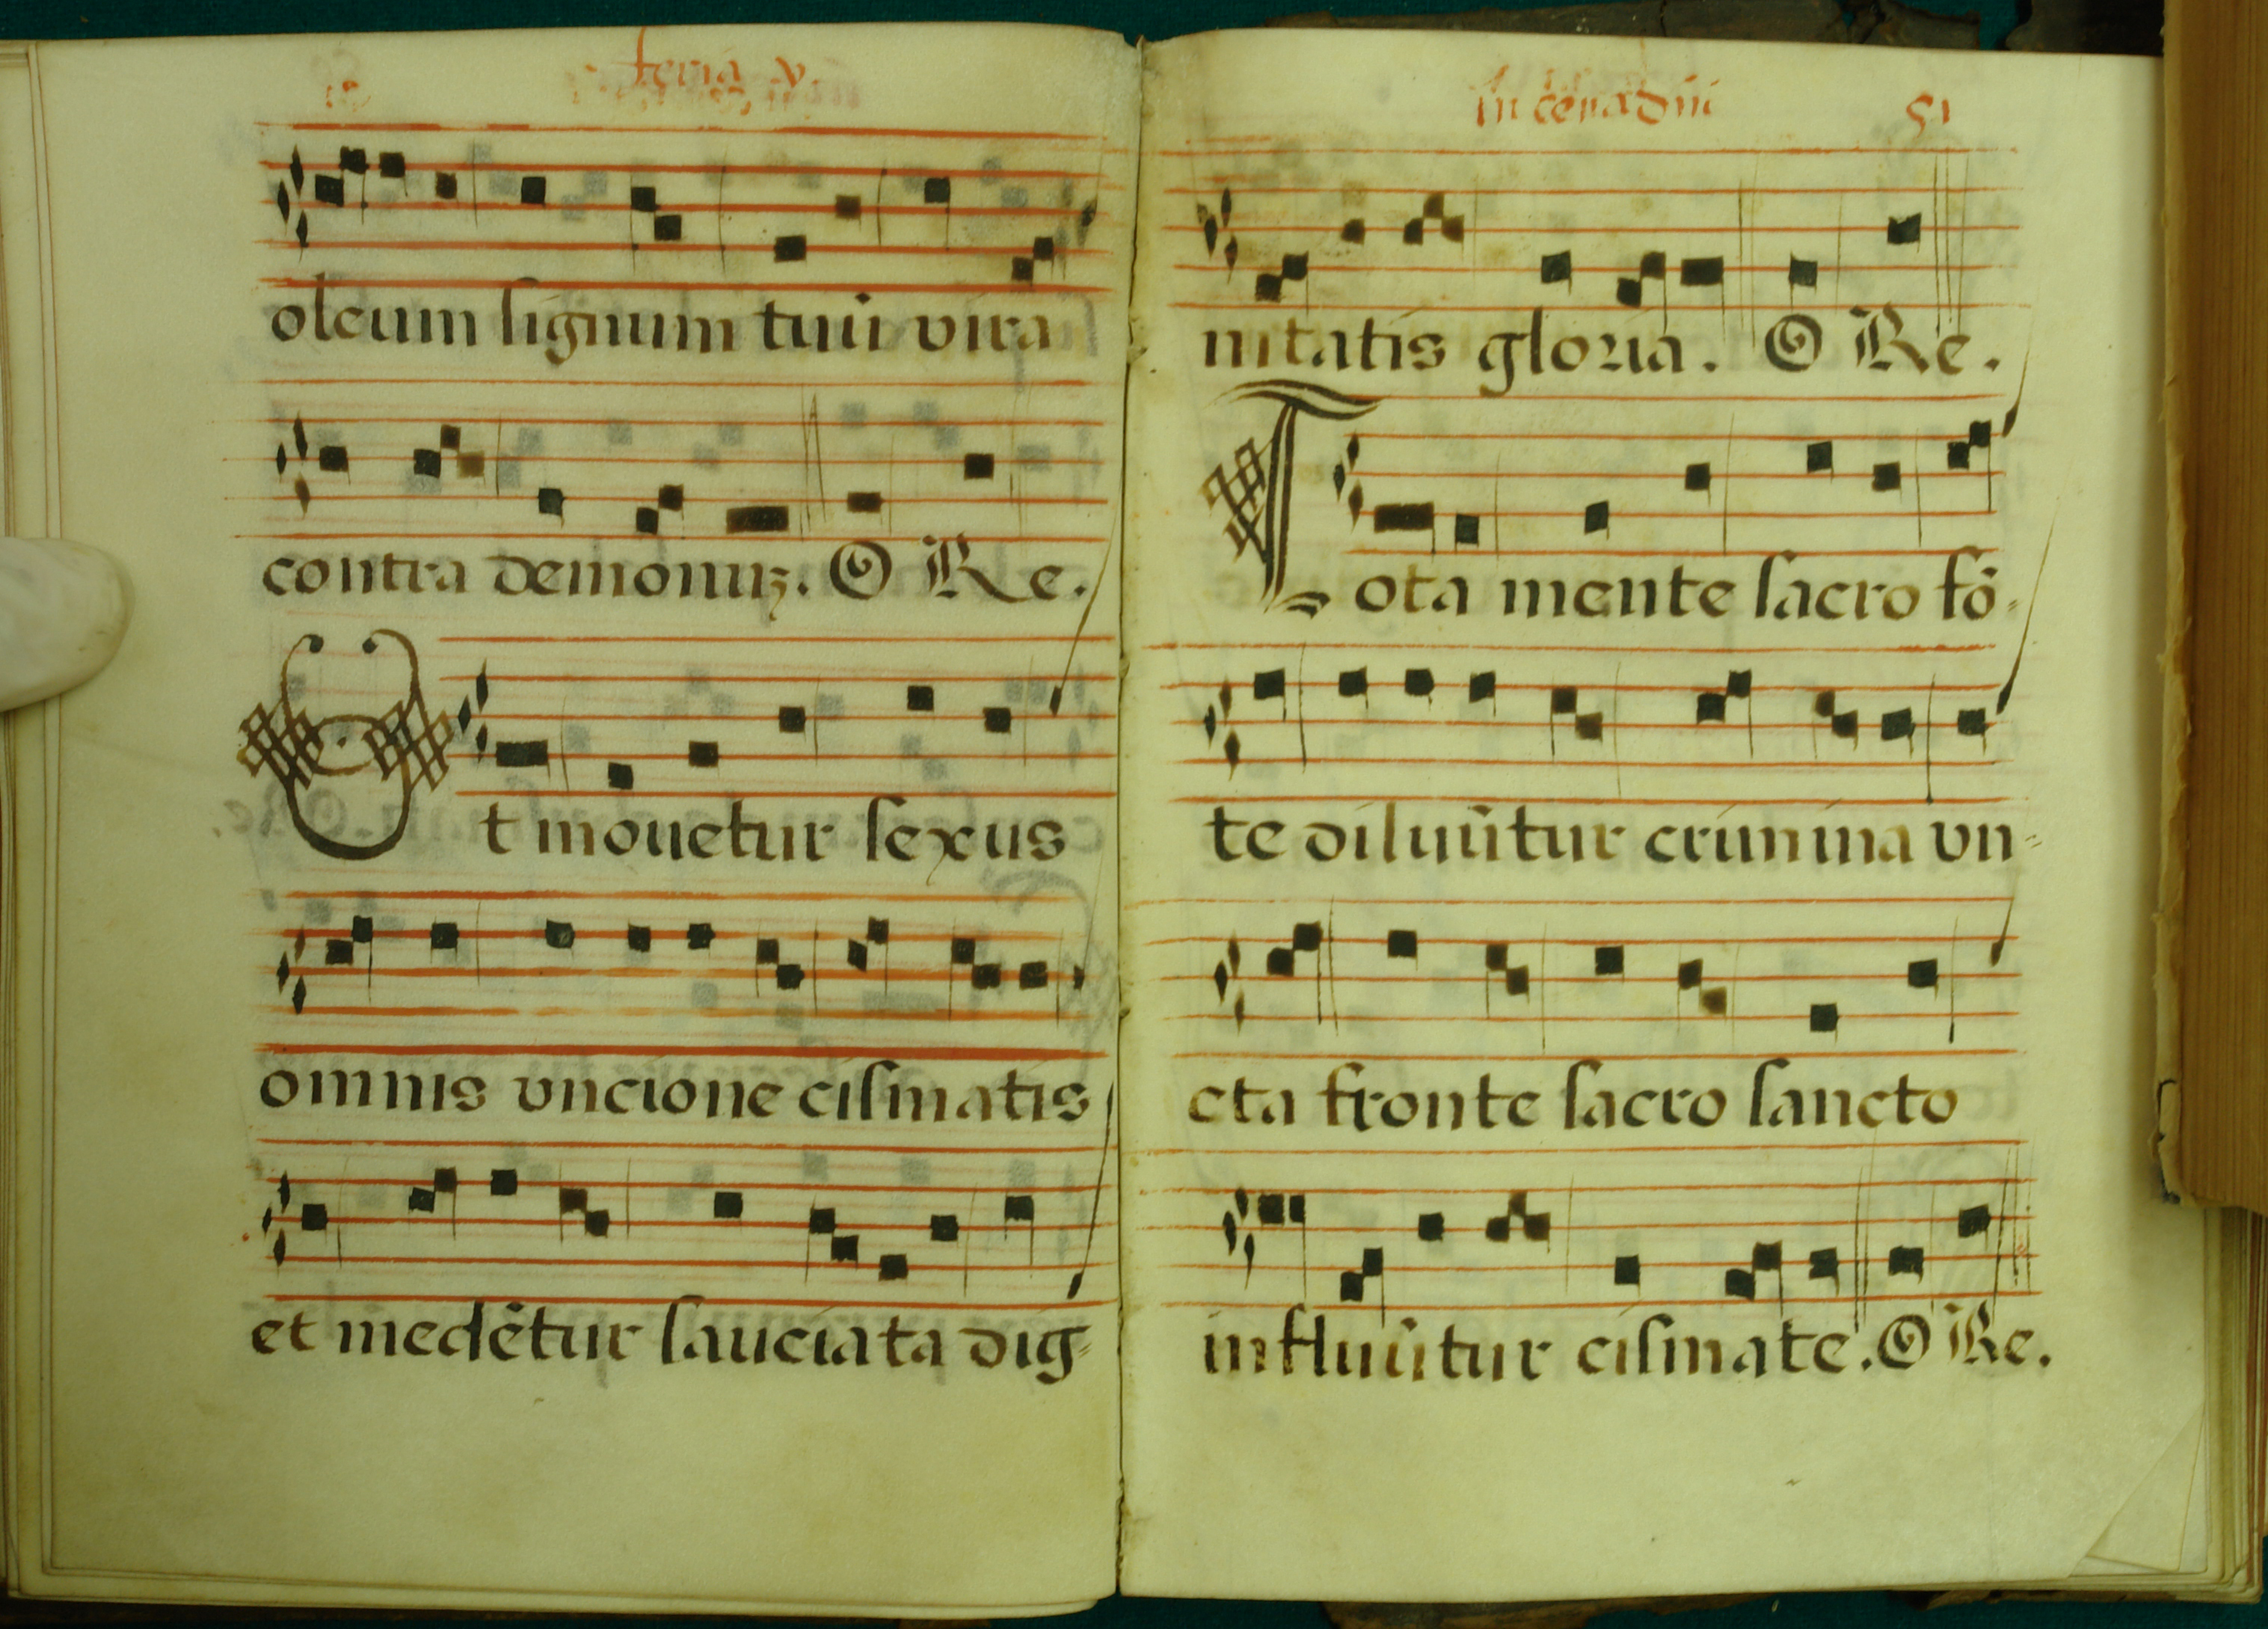 feria v.
oleum signum tuũ vira
contra demonuȝ. O Re.
Ut mouetur sexus
omnis vncione cismatis
et medẽtur sauciata dig-
In cena dñi 51
nitatis gloria. O Re.
Tota mente sacro fõ-
te diluũtur crimina vn-
cta fronte sacro sancto
influũtur cismate. O Re.